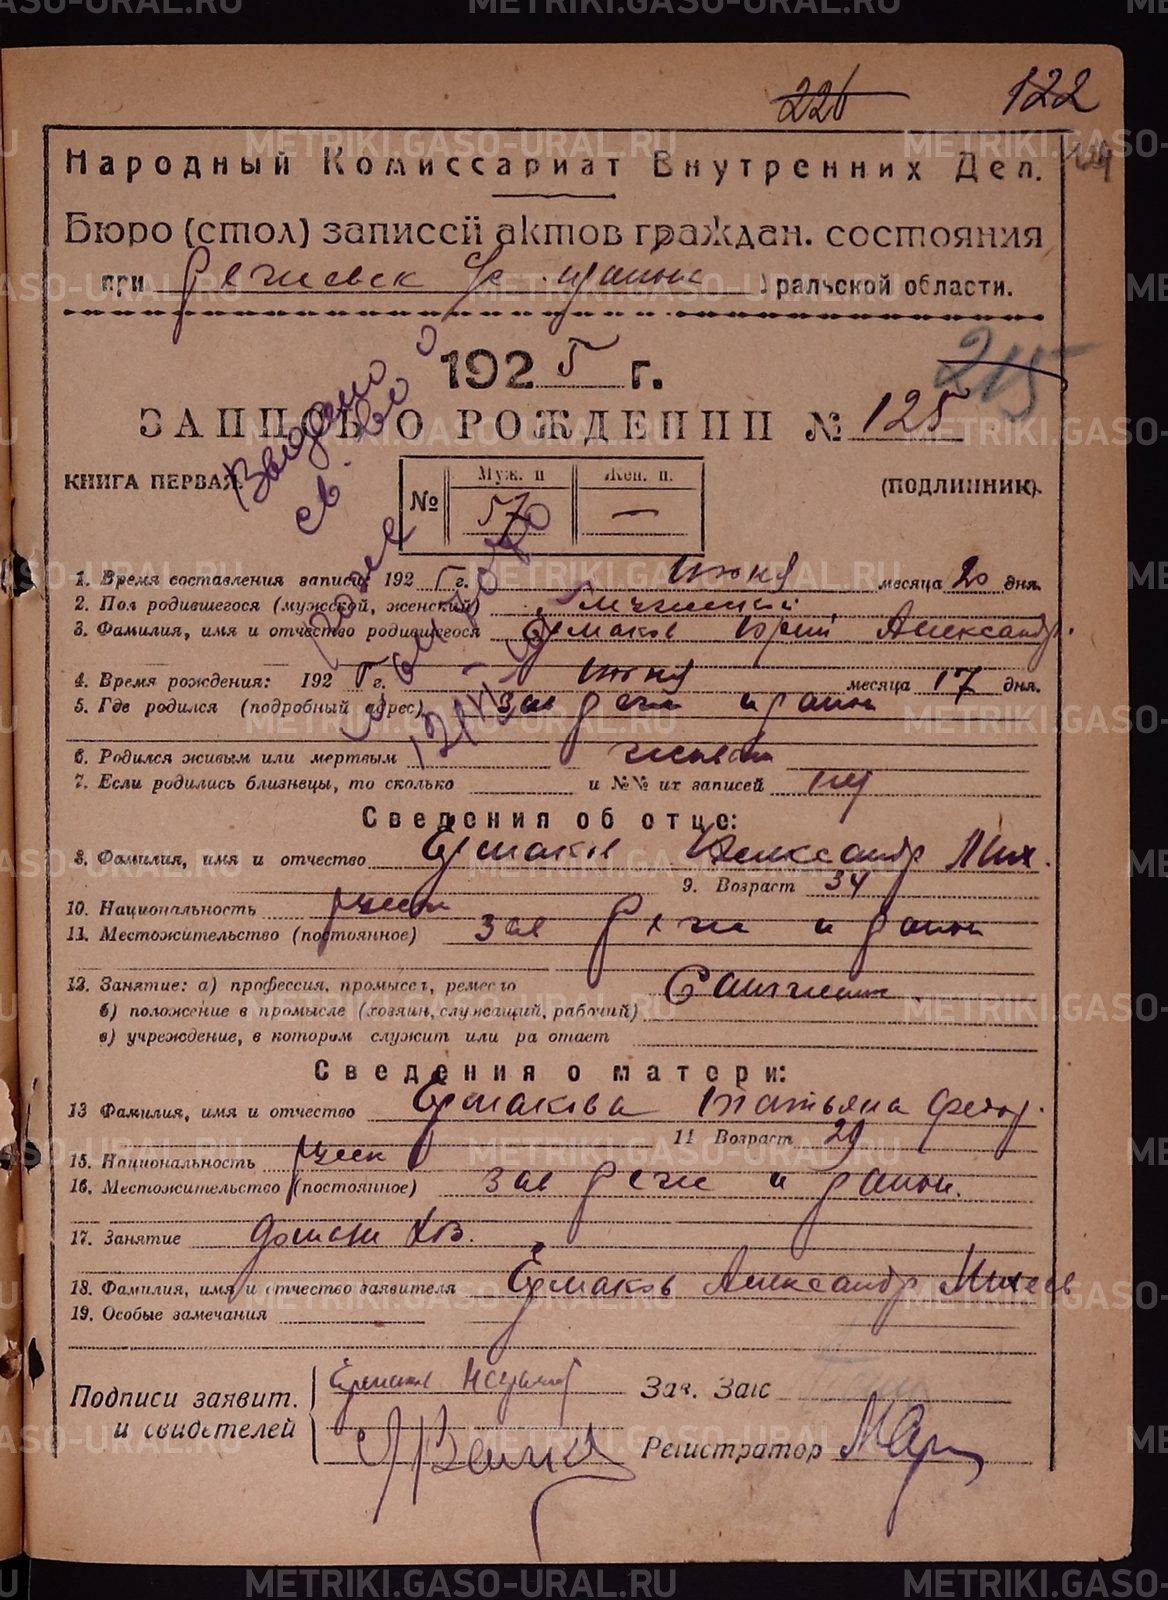 226 122
124
Народный Комиссариат Внутренних Дел.
Бюро (стол) записей актов граждан. состояния
при Режевск район Уральской области.
1925 г.
215
ЗАПИСЬ О РОЖДЕНИИ № 125
КНИГА ПЕРВАЯ. (ПОДЛИННИК).
№ Муж. п. Жен. п.
57 —
Выдано
св-во
1. Время составления записи: 1925 г. Июня месяца 20 дня.
2. Пол родившегося (мужской, женский) Мужской
3. Фамилия, имя и отчество родившегося Ермаков Юрий Александр.
4. Время рождения: 1925 г. Июня месяца 17 дня.
5. Где родился (подробный адрес) зав Режи района
6. Родился живым или мертвым живым
7. Если родились близнецы, то сколько и №№ их записей нет
Сведения об отце:
8. Фамилия, имя и отчество Ермаков Александр Мих.
9. Возраст 34
10. Национальность Русск
11. Местожительство (постоянное) зав Режи района
12. Занятие: а) профессия, промысел, ремесло
б) положение в промысле (хозяин, служащий, рабочий)
в) учреждение, в котором служит или работает
Сведения о матери:
13 Фамилия, имя и отчество Ермакова Татьяна Федор.
14 Возраст 29
15. Национальность Русск
16. Местожительство (постоянное) зав Режи района.
17. Занятие домохоз.
18. Фамилия, имя и отчество заявителя Ермаков Александр Михеев
19. Особые замечания
Подписи заявит. Ермаков Зав. Загс
и свидетелей Регистратор
METRIKI.GASO-URAL.RU